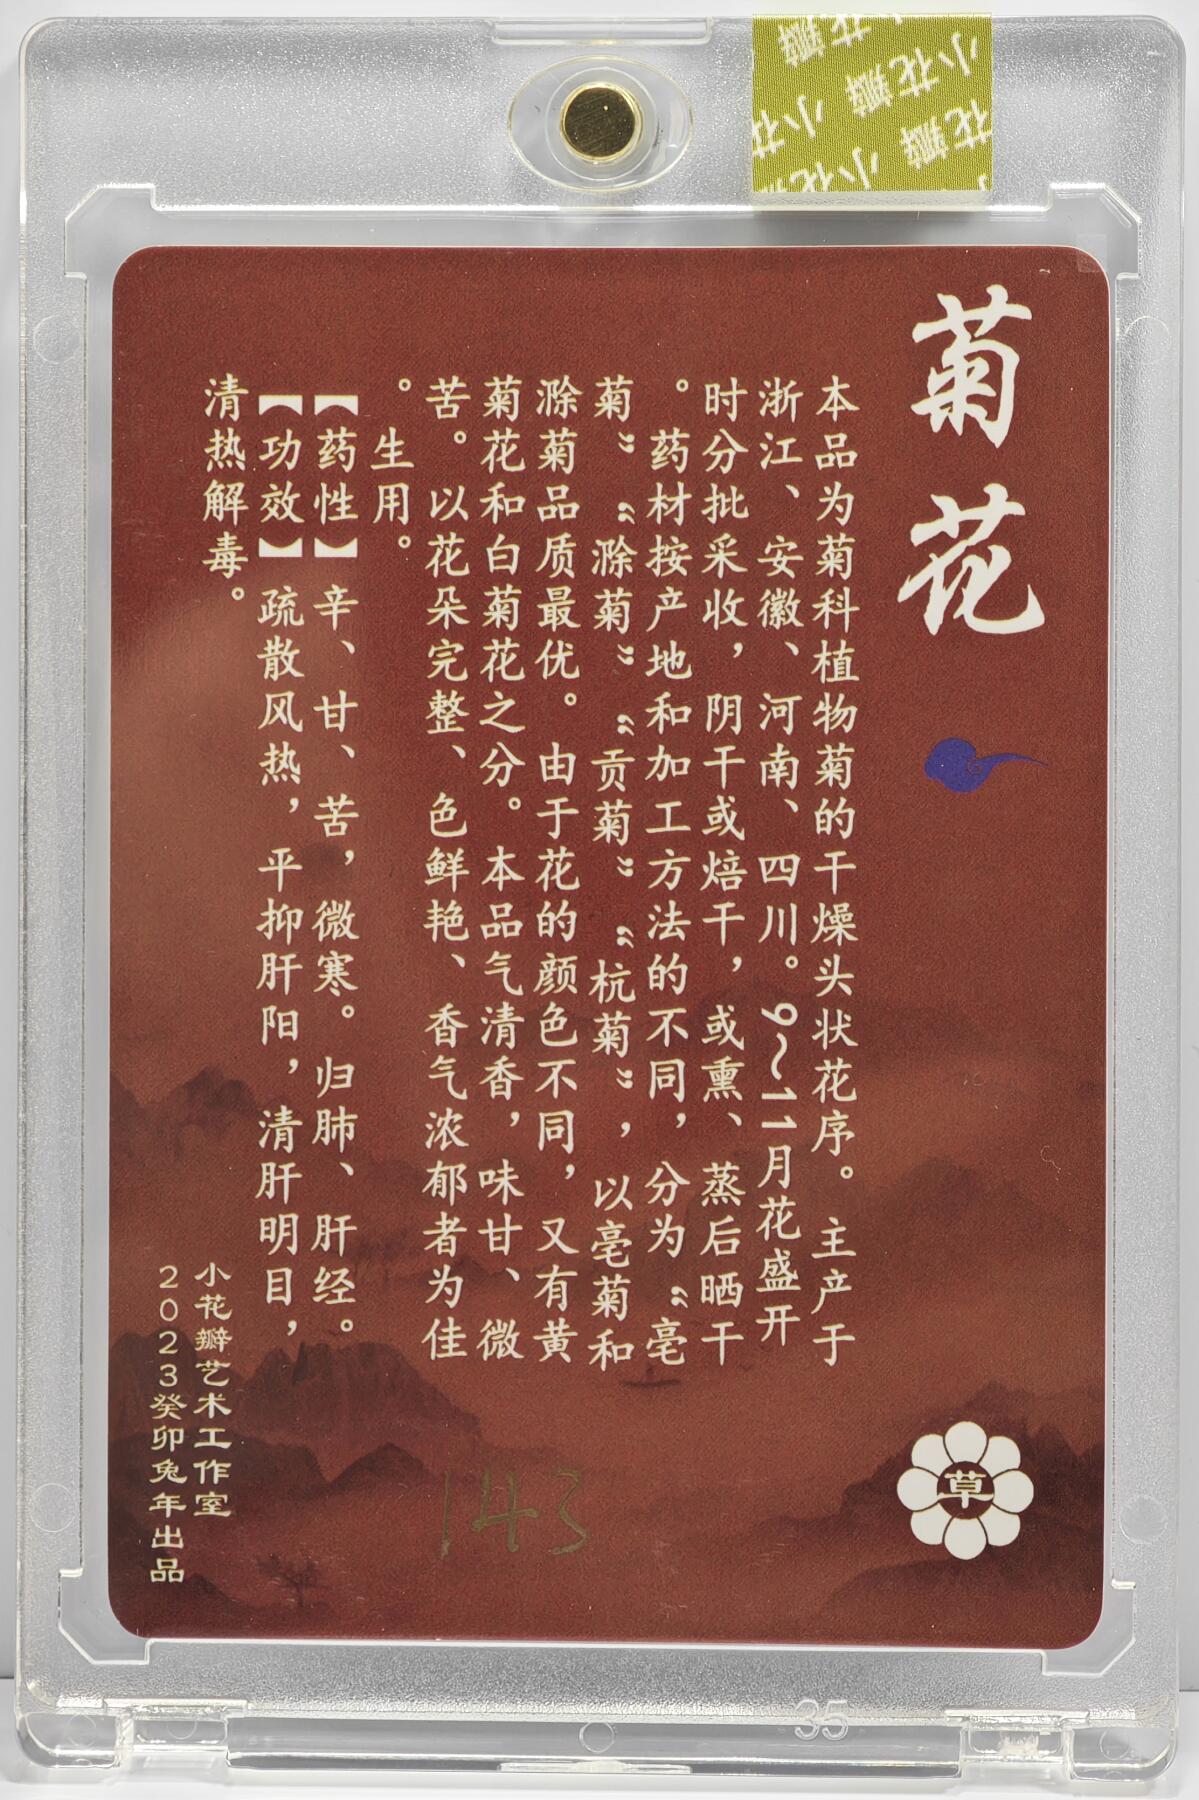 菊花
本品为菊科植物菊的干燥头状花序。主产于
浙江、安徽、河南、四川。9~11月花盛开
时分批采收，阴干或焙干，或熏、蒸后晒干
。药材按产地和加工方法的不同，分为“亳
菊”“滁菊”“贡菊”“杭菊”，以亳菊和
滁菊品质最优。由于花的颜色不同，又有黄
菊花和白菊花之分。本品气清香，味甘、微
苦。以花朵完整、色鲜艳、香气浓郁者为佳
。生用。
【药性】辛、甘、苦，微寒。归肺、肝经。
【功效】疏散风热，平抑肝阳，清肝明目，
清热解毒。
小花瓣艺术工作室
2023癸卯兔年出品
草
143
小花瓣
小花瓣
小花瓣
35